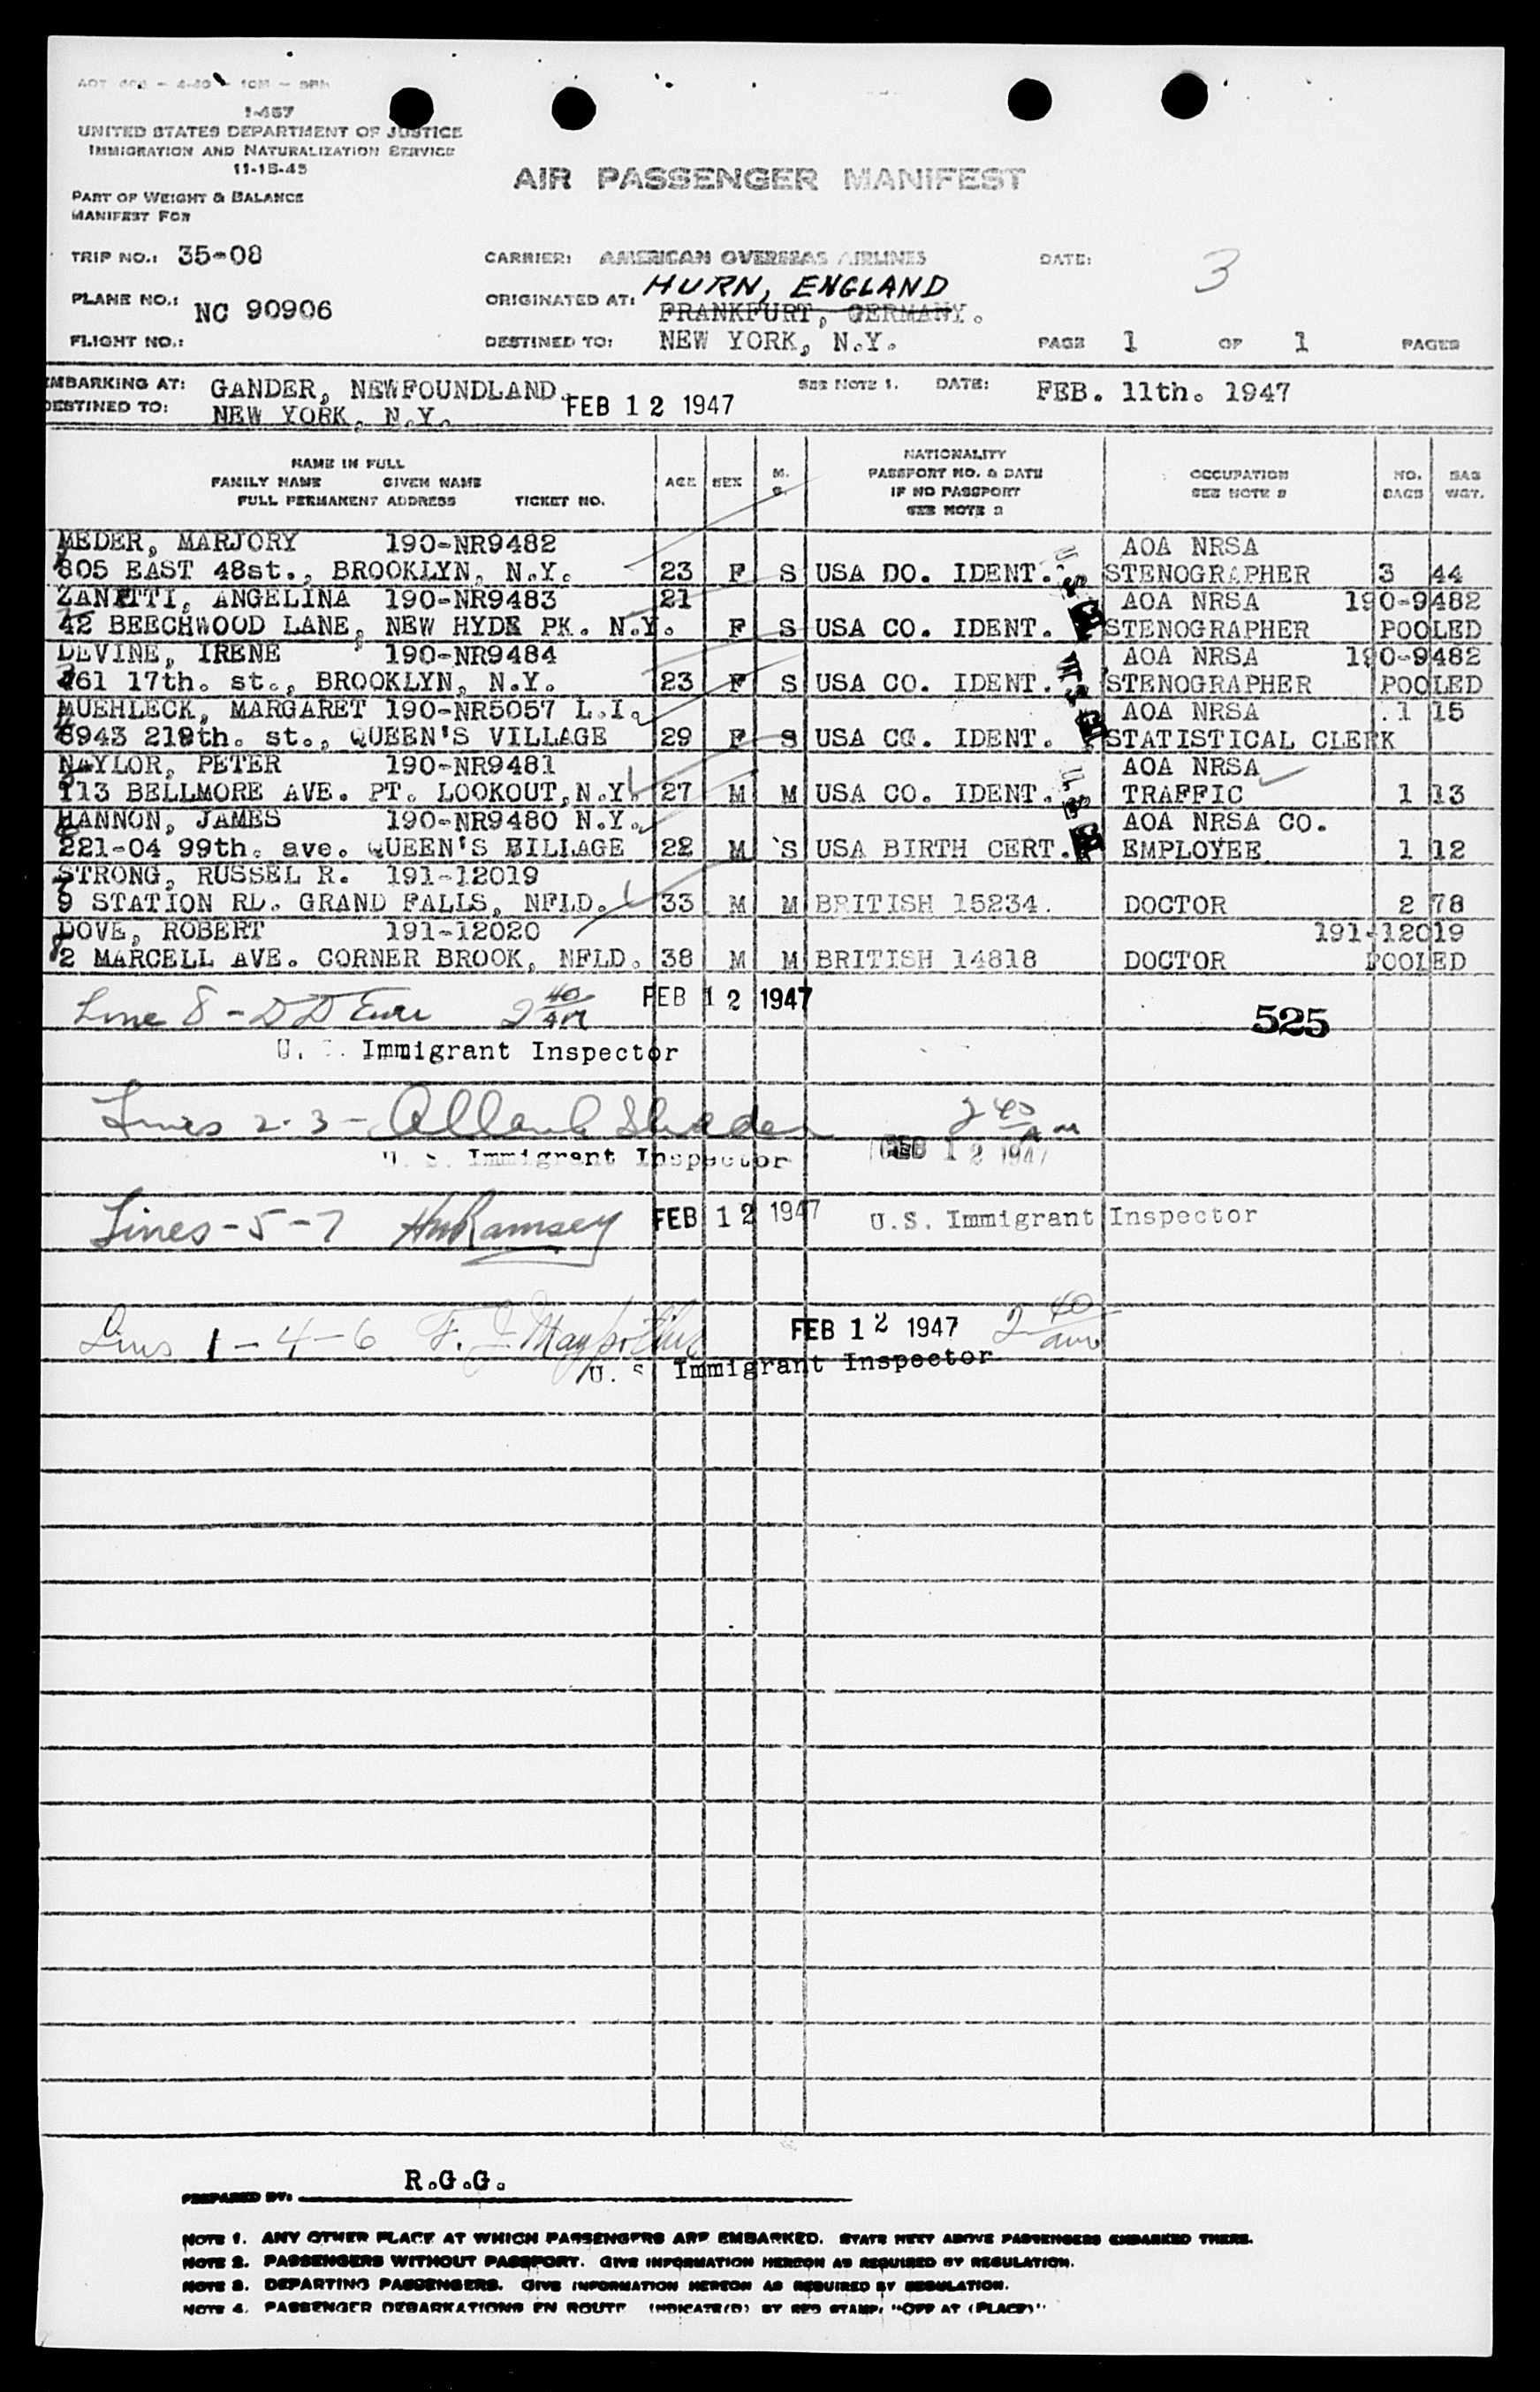 1-457
UNITED STATES DEPARTMENT OF JUSTICE
IMMIGRATION AND NATURALIZATION SERVICE
11-15-45
AIR PASSENGER MANIFEST
PART OF WEIGHT & BALANCE
MANIFEST FOR
TRIP NO.: 35-08 CARRIER: AMERICAN OVERSEAS AIRLINES DATE: 3
HURN, ENGLAND
PLANE NO.: NC 90906 ORIGINATED AT: FRANKFURT, GERMANY.
FLIGHT NO.: DESTINED TO: NEW YORK, N.Y. PAGE 1 OF 1 PAGES
EMBARKING AT: GANDER, NEWFOUNDLAND. SEE NOTE 1. DATE: FEB. 11th. 1947
DESTINED TO: NEW YORK, N.Y. FEB 12 1947
NAME IN FULL
FAMILY NAME GIVEN NAME
FULL PERMANENT ADDRESS TICKET NO. AGE SEX M. S. NATIONALITY PASSPORT NO. & DATE IF NO PASSPORT SEE NOTE 2 OCCUPATION SEE NOTE 2 NO. BAGS BAG WGT.
MEDER, MARJORY 190-NR9482 AOA NRSA
805 EAST 48st., BROOKLYN, N.Y. 23 F S USA DO. IDENT. STENOGRAPHER 3 44
ZANETTI, ANGELINA 190-NR9483 21 AOA NRSA 190-9482
42 BEECHWOOD LANE, NEW HYDE PK. N.Y. F S USA CO. IDENT. STENOGRAPHER POOLED
DEVINE, IRENE 190-NR9484 AOA NRSA 190-9482
461 17th. st., BROOKLYN, N.Y. 23 F S USA CO. IDENT. STENOGRAPHER POOLED
MUEHLECK, MARGARET 190-NR5057 L.I. AOA NRSA 1 15
8943 218th. st., QUEEN'S VILLAGE 29 F S USA CO. IDENT. STATISTICAL CLERK
NAYLOR, PETER 190-NR9481 AOA NRSA
113 BELLMORE AVE. PT. LOOKOUT, N.Y. 27 M M USA CO. IDENT. TRAFFIC 1 13
HANNON, JAMES 190-NR9480 N.Y. AOA NRSA CO.
221-04 99th. ave. QUEEN'S BILLAGE 22 M S USA BIRTH CERT. EMPLOYEE 1 12
STRONG, RUSSEL R. 191-12019
9 STATION RD. GRAND FALLS, NFLD. 33 M M BRITISH 15234. DOCTOR 2 78
DOVE, ROBERT 191-12020 191-12019
2 MARCELL AVE. CORNER BROOK, NFLD. 38 M M BRITISH 14818 DOCTOR POOLED
Line 8 - 2 40 AM FEB 12 1947 525
U. S. Immigrant Inspector
Lines 2-3 - 2 40 AM
U. S. Immigrant Inspector FEB 12 1947
Lines - 5 - 7 Ramsey FEB 12 1947 U.S. Immigrant Inspector
Lines 1 - 4 - 6 FEB 12 1947 2 40 am
U. S. Immigrant Inspector
PREPARED BY: R.G.G.
NOTE 1. ANY OTHER PLACE AT WHICH PASSENGERS ARE EMBARKED. STATE NEXT ABOVE PASSENGERS EMBARKED THERE.
NOTE 2. PASSENGERS WITHOUT PASSPORT. GIVE INFORMATION HEREON AS REQUIRED BY REGULATION.
NOTE 3. DEPARTING PASSENGERS. GIVE INFORMATION HEREON AS REQUIRED BY REGULATION.
NOTE 4. PASSENGER DEBARKATIONS EN ROUTE INDICATE(D) BY RED STAMP, "OFF AT (PLACE)"